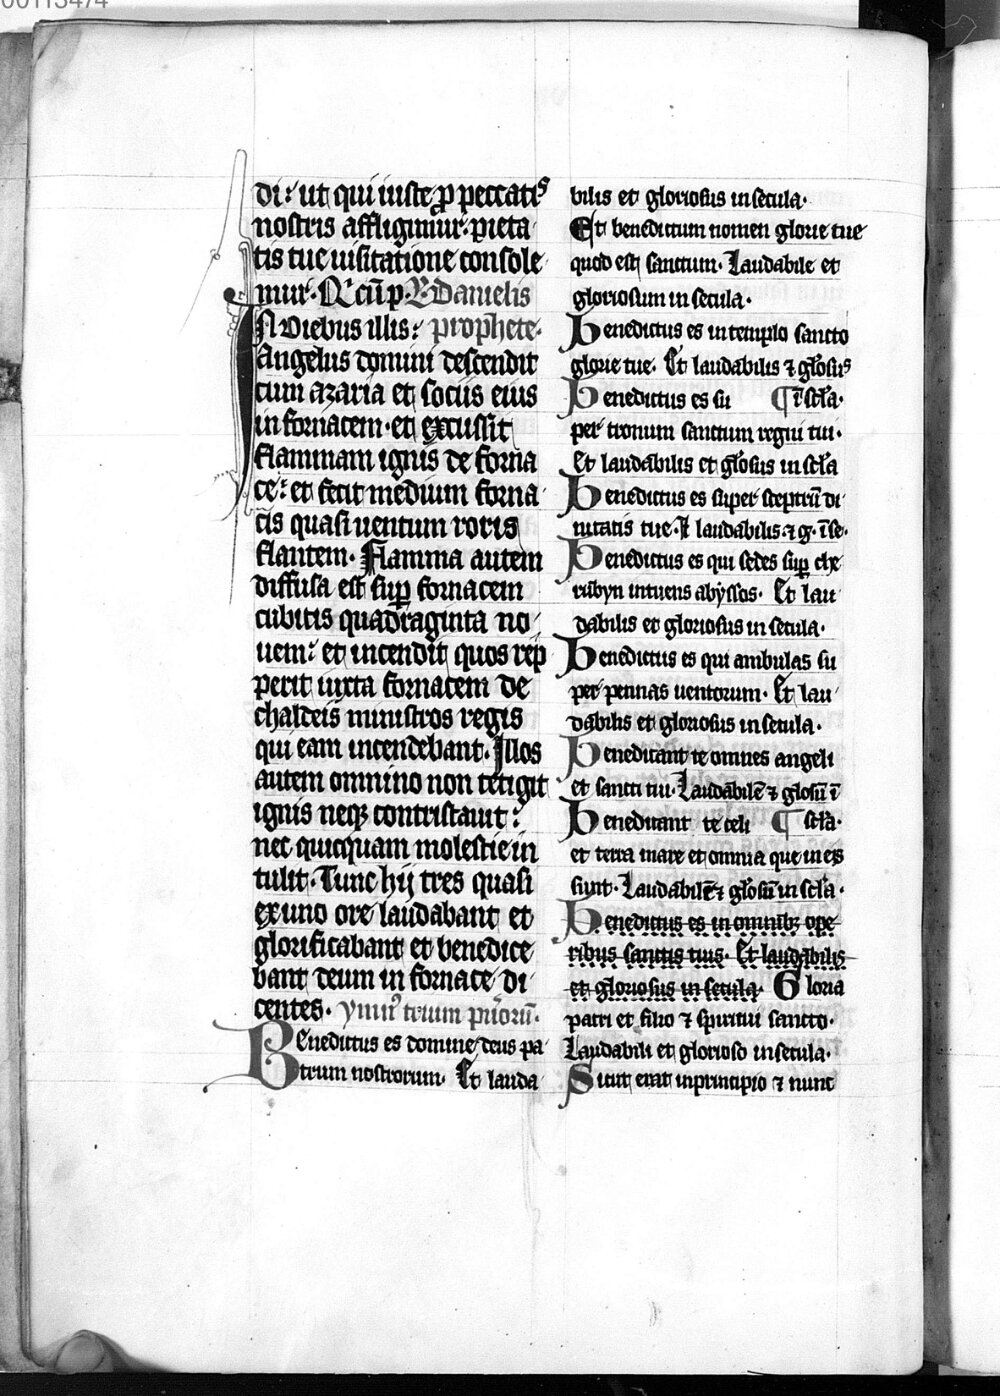 00113474
di: ut qui iuste ꝓ peccatis
nostris affligimur. pieta
tis tue uisitatione console
mur. Danielis
IN diebus illis: prophete.
Angelus domini descendit
cum azaria et sociis eius
in fornacem. et excussit
flammam ignis de forna
ce: et fecit medium forna
cis quasi uentum roris
flantem. Flamma autem
diffusa est suꝑ fornacem
cubitis quadraginta no
uem: et incendit quos rep
perit iuxta fornacem de
chaldeis ministros regis
qui eam incendebant. Illos
autem omnino non tetigit
ignis neqꝫ contristauit:
nec quicquam molestie in
tulit. Tunc hij tres quasi
ex uno ore laudabant et
glorificabant et benedice
bant deum in fornace di
centes. ymnꝰ trium puͦrū.
Benedictus es domine deus pa
trum nostrorum. Et lauda
bilis et gloriosus in secula.
Et benedictum nomen glorie tue
quod est sanctum. Laudabile et
gloriosum in secula.
Benedictus es in templo sancto
glorie tue. Et laudabilis ⁊ glōsus
Benedictus es su ¶ ī scła.
per tronum sanctum regni tui.
Et laudabilis et glōsus in scła
Benedictus es super sceptrū di
uitatis tue. Et laudabilis. ⁊ g. ī se.
Benedictus es qui sedes suꝑ che
rubyn intuens abyssos. Et lau
dabilis et gloriosus in secula.
Benedictus es qui ambulas su
per pennas uentorum. Et lau
dabilis et gloriosus in secula.
Benedicant te omnes angeli
et sancti tui. Laudabilē ⁊ glosū ī
Benedicant te celi ¶ scła.
et terra mare et omnia que in eis
sunt. Laudabilē ⁊ glosū in scła.
Benedictus es in omnibꝫ ope
ribus sanctis tuis. Et laudabilis
et gloriosus in secula. Gloria
patri et filio ⁊ spiritui sancto.
Laudabili et glorioso in secula.
Sicut erat in principio ⁊ nunc